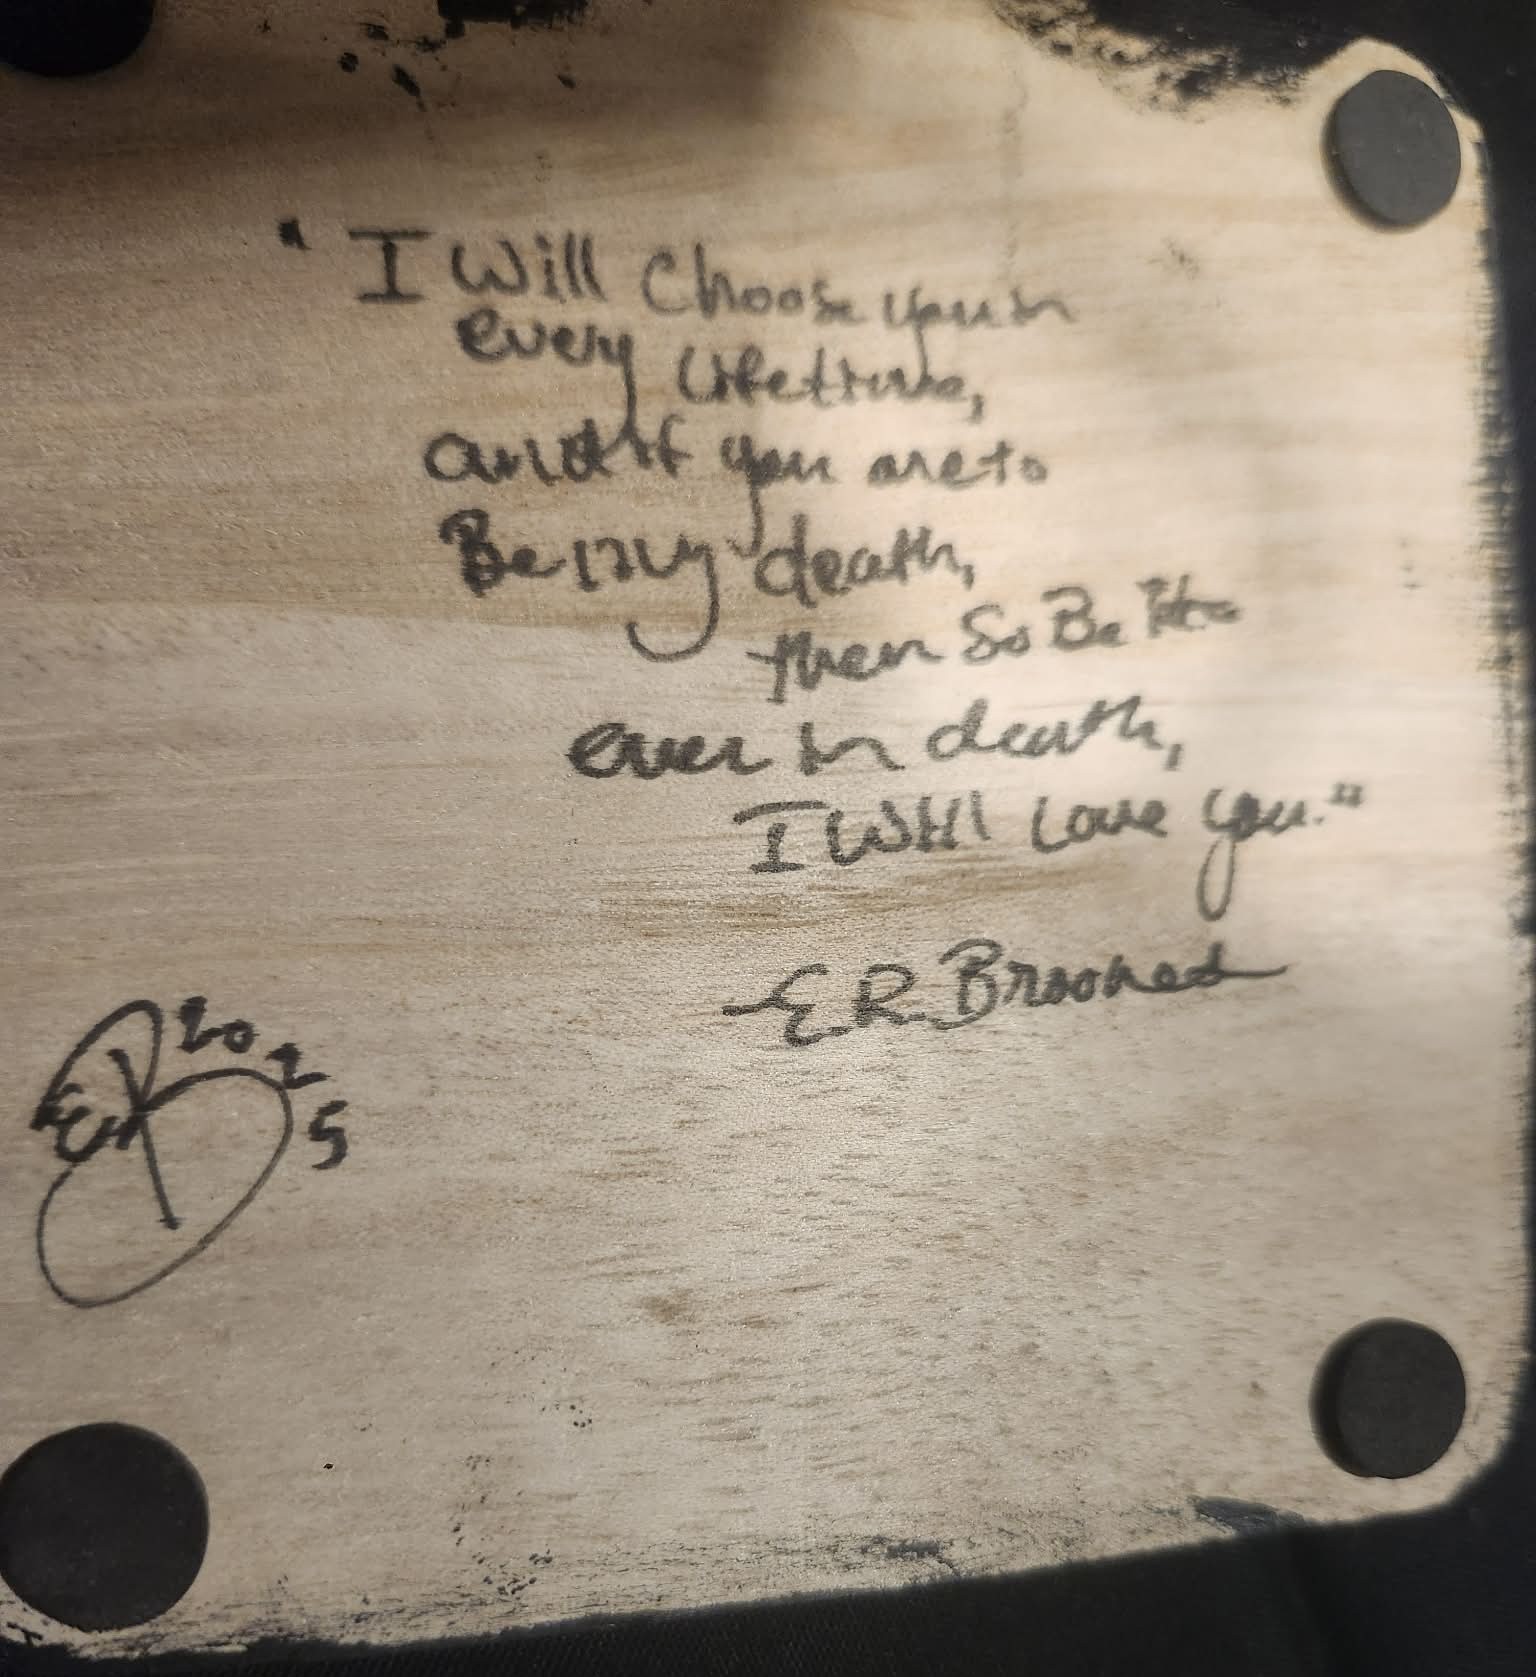 "I Will Choose you in
every lifetime,
and if you are to
Be my death,
then So Be it
even in death,
I Will Love you."
-E.R. Brooked
ERB 2025